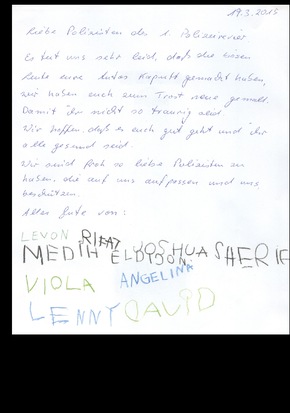 19.3.2015
Liebe Polizisten des 1. Polizeirevier
Es tut uns sehr leid, daß die bösen
Leute eure Autos kaputt gemacht haben,
wir haben euch zum Trost neue gemalt.
Damit ihr nicht so traurig seid.
Wir hoffen, daß es euch gut geht und ihr
alle gesund seid.
Wir sind froh so liebe Polizisten zu
haben, die auf uns aufpassen und uns
beschützen.
Alles Gute von:
LEVON RIFAT
MEDIH ELDION JOSHUA SHERIF
VIOLA ANGELINA
LENNY DAVID